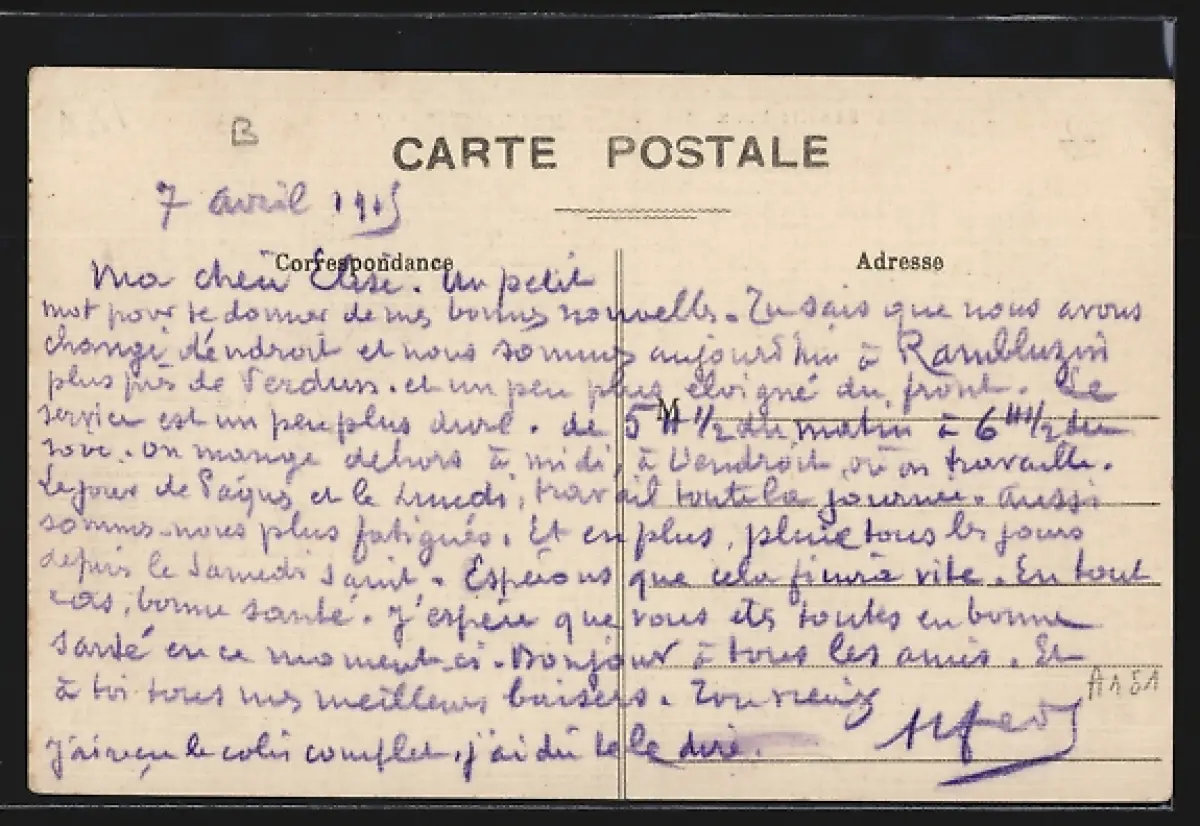 B
CARTE POSTALE
7 avril 1915
Correspondance
Adresse
Ma chère Elise. Un petit
mot pour te donner de mes bonnes nouvelles. Tu sais que nous avons
changé d'endroit et nous sommes aujourd'hui à Rambluzin
plus près de Verdun. et un peu plus éloigné du front. Le
M
service est un peu plus dure. de 5 H 1/2 du matin à 6 H 1/2 du
soir. On mange dehors à midi, à l'endroit où on travaille.
Le jour de Pâques et le Lundi, travail toute la journée. Aussi
sommes-nous plus fatigués. Et en plus, pluie tous les jours
depuis le Samedi Saint. Espérons que cela finira vite. En tout
cas, bonne santé. J'espère que vous êtes toutes en bonne
santé en ce moment-ci. Bonjour à tous les amis. Et
à toi tous mes meilleurs baisers. Ton vieux
A151
Alfred
J'ai reçu le colis complet, j'ai dû te le dire.